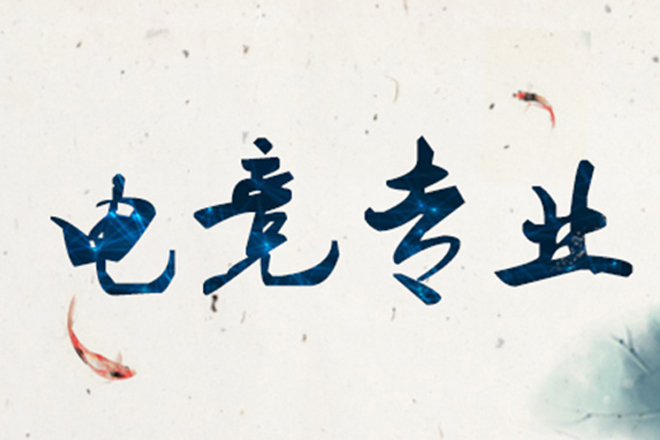 电竞专业